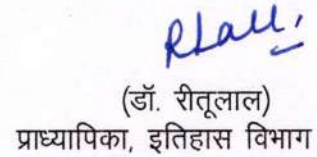 RLall,
(डॉ. रीतूलाल)
प्राध्यापिका, इतिहास विभाग